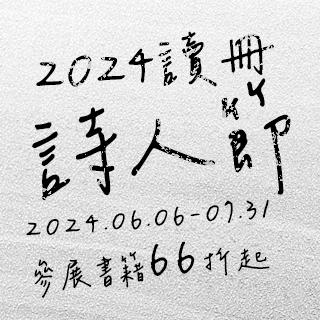 2024讀冊
詩人節
2024.06.06-07.31
參展書籍66折起